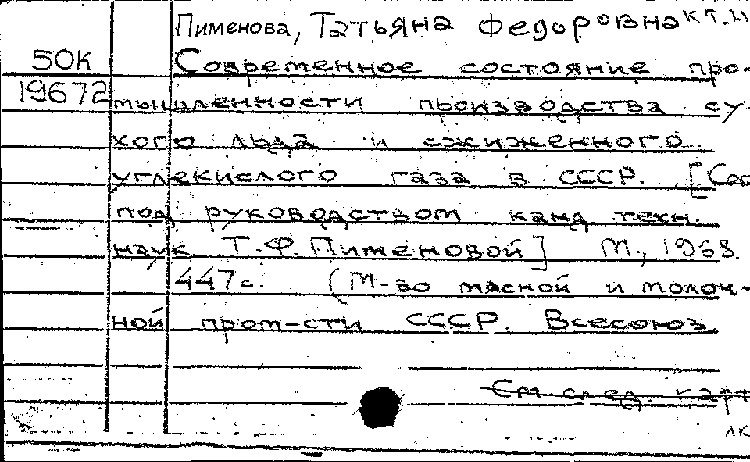 Пименова, Татьяна Федоровна к.т.н
50К Современное состояние про-
19672 мышленности производства су-
хого льда и сжиженного
углекислого газа в СССР. [Сос
под руководством канд. техн.
наук Т.Ф. Пименовой] М., 1968.
447с. (М-во мясной и молоч-
ной пром-сти СССР. Всесоюз.
См. след. карт